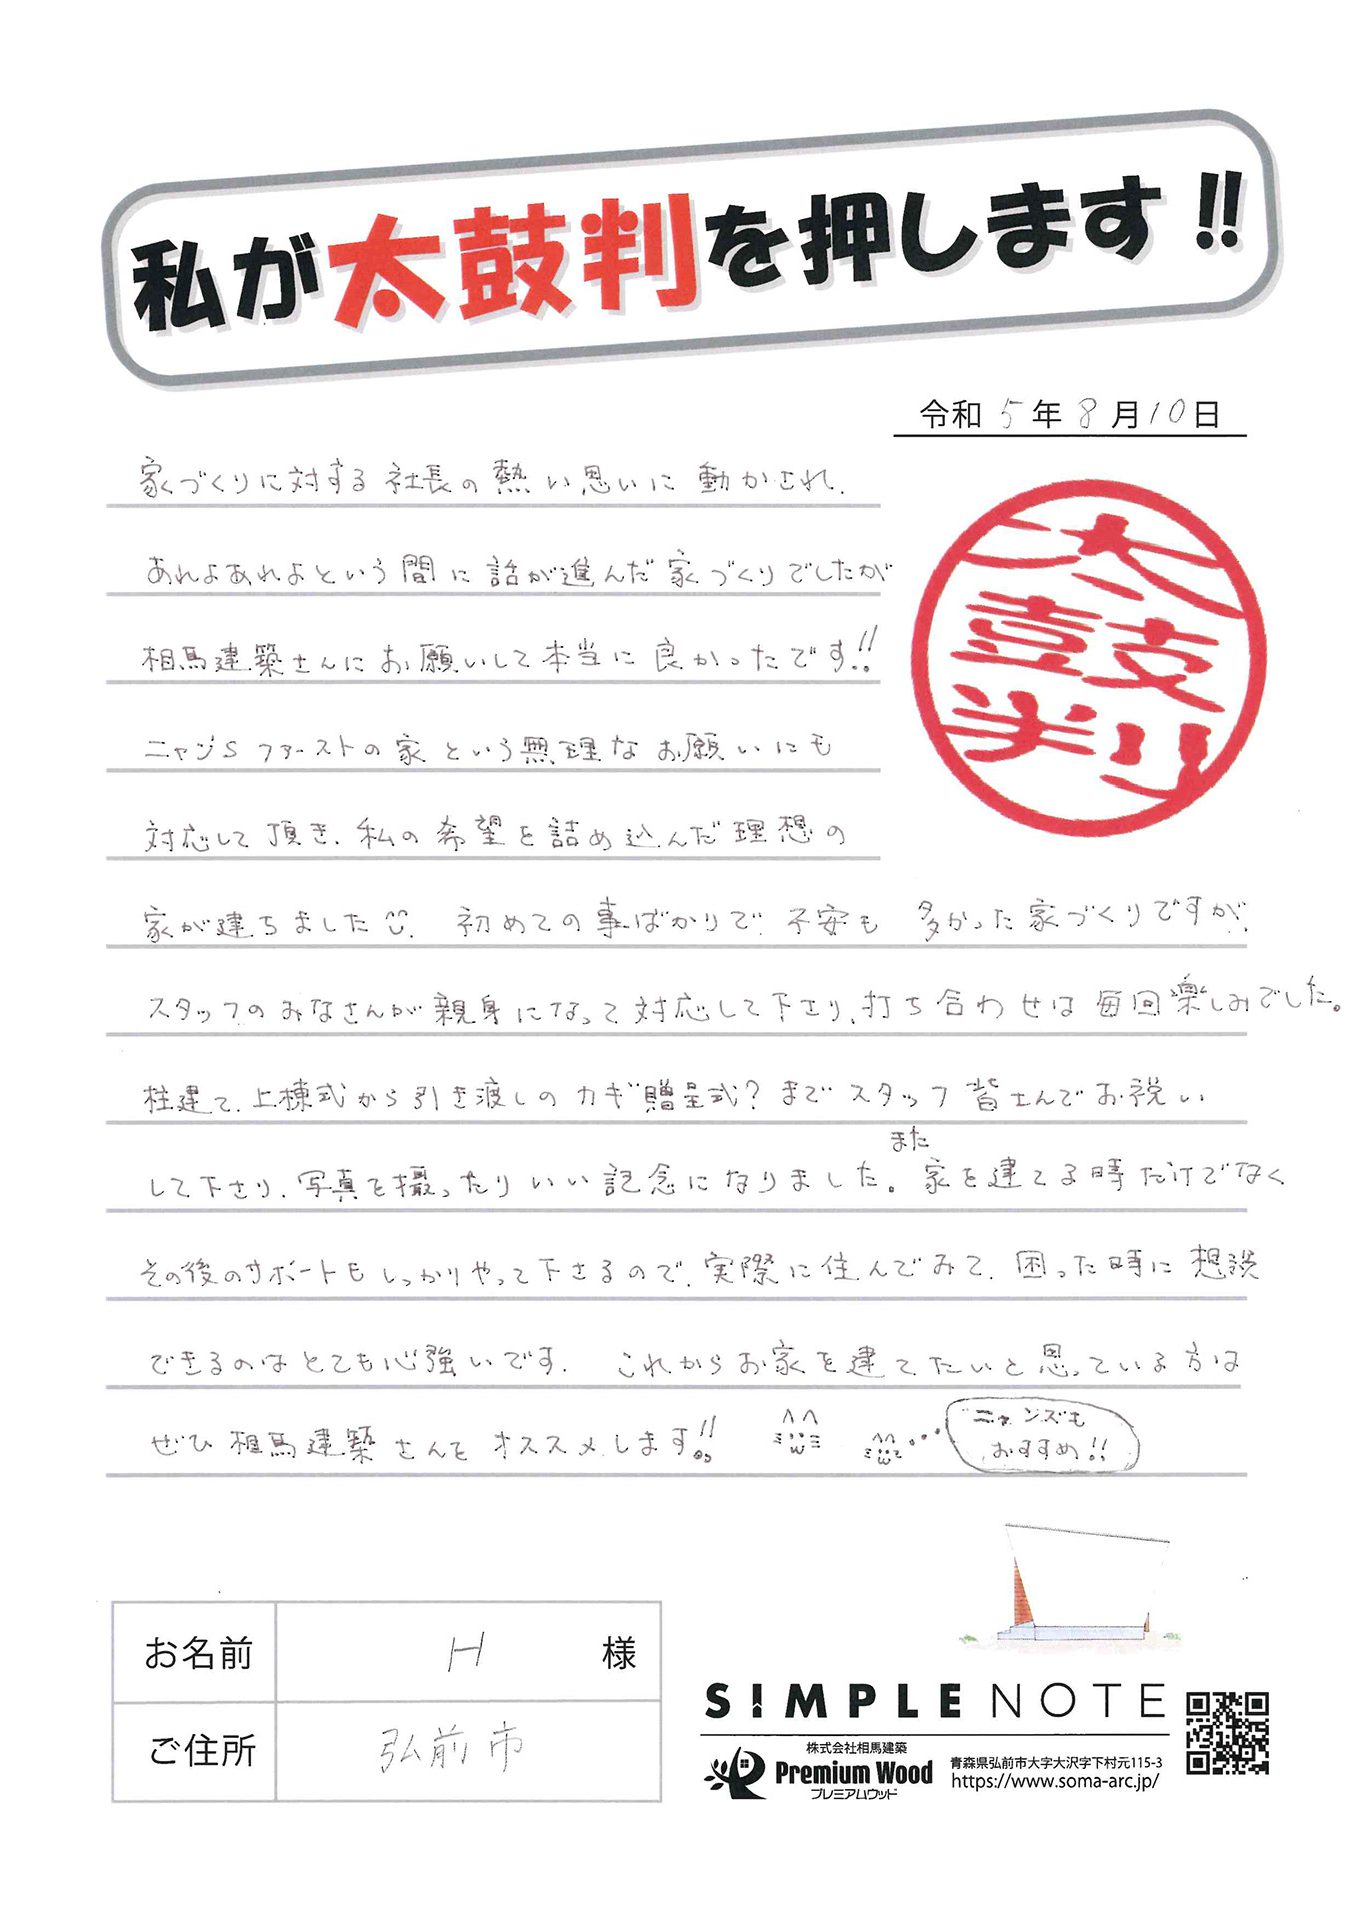 私が太鼓判を押します!!
令和 5年 8月10日
家づくりに対する社長の熱い思いに動かされ、
太鼓判
あれよあれよという間に話が進んだ家づくりでしたが
相馬建築さんにお願いして本当に良かったです!!
ニャンSファーストの家という無理なお願いにも
対応して頂き、私の希望を詰め込んだ理想の
家が建ちました 初めての事ばかりで、不安も多かった家づくりですが、
スタッフのみなさんが親身になって対応して下さり、打ち合わせは毎回楽しみでした。
柱建て、上棟式から引き渡しのカギ贈呈式?までスタッフ皆さんでお祝い
して下さり、写真を撮ったりいい記念になりました。また家を建てる時だけでなく
その後のサポートもしっかりやって下さるので、実際に住んでみて、困った時に想談
できるのはとても心強いです。 これからお家を建てたいと思っている方は
ぜひ相馬建築さんをオススメします!!
ニャンズも
おすすめ!!
お名前 H 様
ご住所 弘前市
SIMPLE NOTE
株式会社相馬建築
Premium Wood
プレミアムウッド
青森県弘前市大字大沢字下村元115-3
https://www.soma-arc.jp/